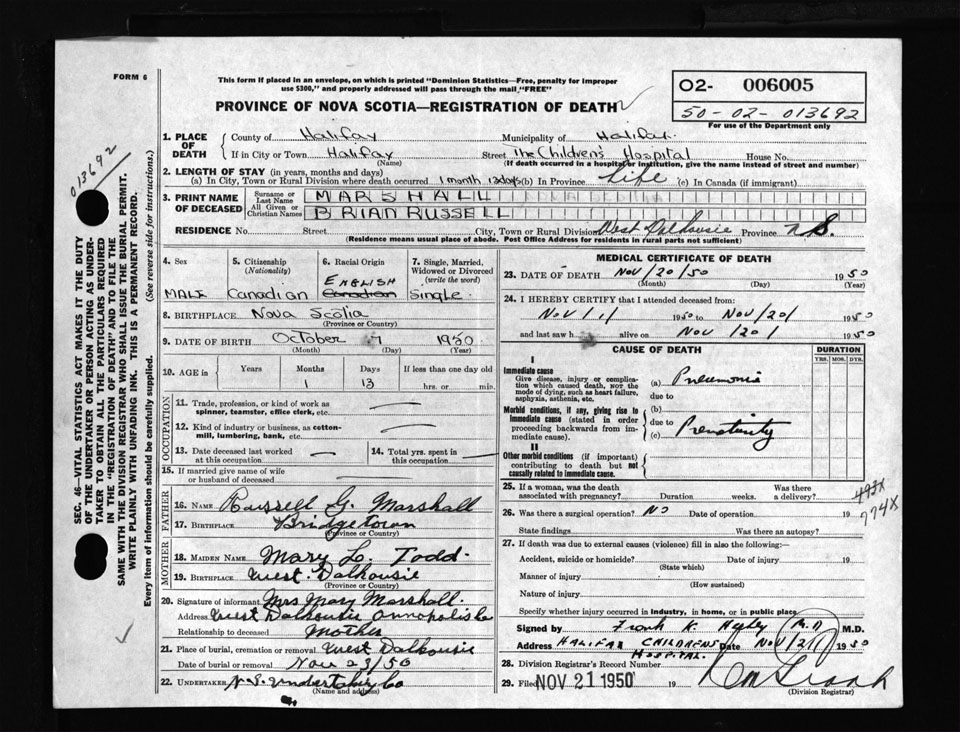 FORM 6
This form if placed in an envelope, on which is printed "Dominion Statistics—Free, penalty for improper
use $300," and properly addressed will pass through the mail "FREE"
PROVINCE OF NOVA SCOTIA—REGISTRATION OF DEATH
O2- 006005
50-02-013692
For use of the Department only
013692
SEC. 46—VITAL STATISTICS ACT MAKES IT THE DUTY
OF THE UNDERTAKER OR PERSON ACTING AS UNDER-
TAKER TO OBTAIN ALL THE PARTICULARS REQUIRED
IN THE "REGISTRATION OF DEATH" AND TO FILE THE
SAME WITH THE DIVISION REGISTRAR WHO SHALL ISSUE THE BURIAL PERMIT.
WRITE PLAINLY WITH UNFADING INK. THIS IS A PERMANENT RECORD.
Every item of information should be carefully supplied. (See reverse side for instructions.)
1. PLACE OF DEATH County of Halifax Municipality of Halifax
If in City or Town Halifax Street The Children's Hospital House No.
(Name) (If death occurred in a hospital or institution, give the name instead of street and number)
2. LENGTH OF STAY (in years, months and days)
(a) In City, Town or Rural Division where death occurred 1 month 13 days (b) In Province Life (c) In Canada (if immigrant)
3. PRINT NAME OF DECEASED Surname or Last Name MARSHALL
All Given or Christian Names BRIAN RUSSELL
RESIDENCE No. Street City, Town or Rural Division West Dalhousie Province N.S.
(Residence means usual place of abode. Post Office Address for residents in rural parts not sufficient)
4. Sex 5. Citizenship (Nationality) 6. Racial Origin 7. Single, Married, Widowed or Divorced (write the word)
MALE Canadian ENGLISH Canadian Single
8. BIRTHPLACE Nova Scotia
(Province or Country)
9. DATE OF BIRTH October 7 1950
(Month) (Day) (Year)
10. AGE in Years Months Days If less than one day old
1 13 hrs. or min.
OCCUPATION
11. Trade, profession, or kind of work as
spinner, teamster, office clerk, etc.
12. Kind of industry or business, as cotton-
mill, lumbering, bank, etc.
13. Date deceased last worked
at this occupation
14. Total yrs. spent in
this occupation
15. If married give name of wife
or husband of deceased
FATHER
16. NAME Russell G. Marshall
17. BIRTHPLACE Bridgetown
(Province or Country)
MOTHER
18. MAIDEN NAME Mary L. Todd
19. BIRTHPLACE West Dalhousie
(Province or Country)
20. Signature of informant Mrs Mary Marshall
Address West Dalhousie Annapolis Co
Relationship to deceased Mother
21. Place of burial, cremation or removal West Dalhousie
Date of burial or removal Nov 23/50
22. UNDERTAKER N.S. Undertaking Co
(Name and address)
MEDICAL CERTIFICATE OF DEATH
23. DATE OF DEATH Nov/20/50 1950
(Month) (Day) (Year)
24. I HEREBY CERTIFY that I attended deceased from:
Nov/1/ 1950 to Nov/20/ 1950
and last saw h alive on Nov/20/ 1950
CAUSE OF DEATH DURATION
YRS. MOS. DYS.
I
Immediate cause
Give disease, injury or complica-
tion which caused death, NOT the
mode of dying, such as heart failure,
asphyxia, asthenia, etc.
(a) Pneumonia
due to
Morbid conditions, if any, giving rise to
immediate cause (stated in order
proceeding backwards from im-
mediate cause).
(b)
due to
(c) Prematurity
II
Other morbid conditions (if important)
contributing to death but not
causally related to immediate cause.
25. If a woman, was the death Was there
associated with pregnancy? Duration weeks. a delivery?
493X
774X
26. Was there a surgical operation? No Date of operation 19
State findings Was there an autopsy?
27. If death was due to external causes (violence) fill in also the following:—
Accident, suicide or homicide? Date of injury 19
(State which)
Manner of injury
(How sustained)
Nature of injury
Specify whether injury occurred in industry, in home, or in public place
Signed by Frank K. M.D. M.D.
Address HALIFAX CHILDRENS HOSPITAL Date Nov/21/ 1950
28. Division Registrar's Record Number
29. Filed NOV 21 1950 19
(Division Registrar)